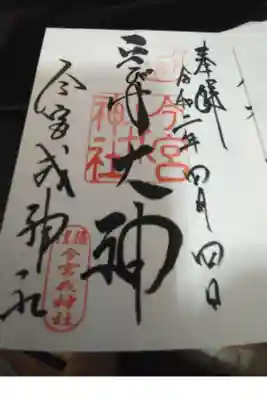 奉拝
令和二年四月四日
大神
今宮戎神社
今宮
戎
神社
今宮戎神社